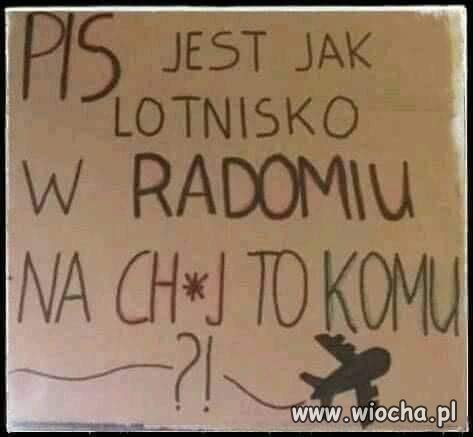 PIS JEST JAK
LOTNISKO
W RADOMIU
NA CH*J TO KOMU
?!
www.wiocha.pl